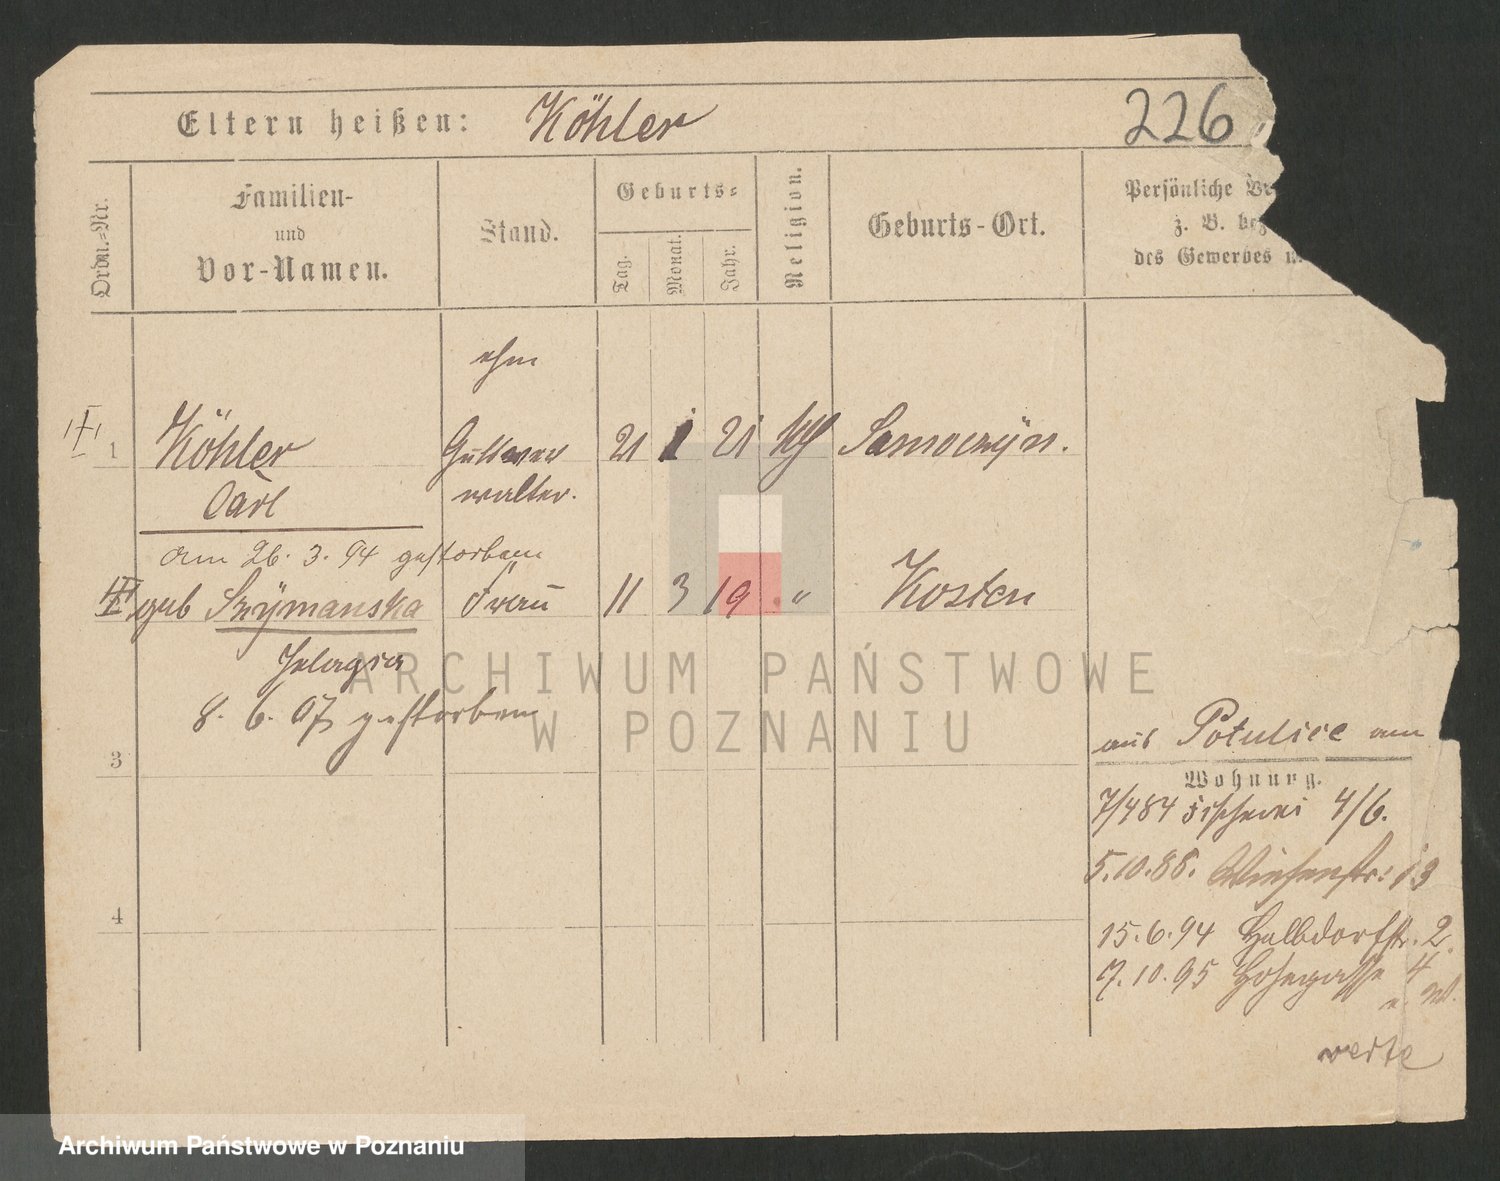 Eltern heißen: Köhler 226
Ordn.-Nr.
Familien-
und
Vor-Namen.
Stand.
Geburts-
Tag.
Monat.
Jahr.
Religion.
Geburts-Ort.
Persönliche
z. B.
des Gewerbes
ehm
1 Köhler Gutsver 21 1 21 kth Samoczyn.
Carl walter.
am 26. 3. 94 gestorben
geb Szÿmanska Frau 11 3 19 " Kosten
Pelagia
8. 6. 07 gestorben
3
4
aus Potulice am
Wohnung.
7/4 84 Fischerei 4/6.
5.10.88. Wiesenstr: 13
15.6.94 Halbdorfstr. 2.
7.10.95 Hohegasse 4
ARCHIWUM PAŃSTWOWE
W POZNANIU
Archiwum Państwowe w Poznaniu